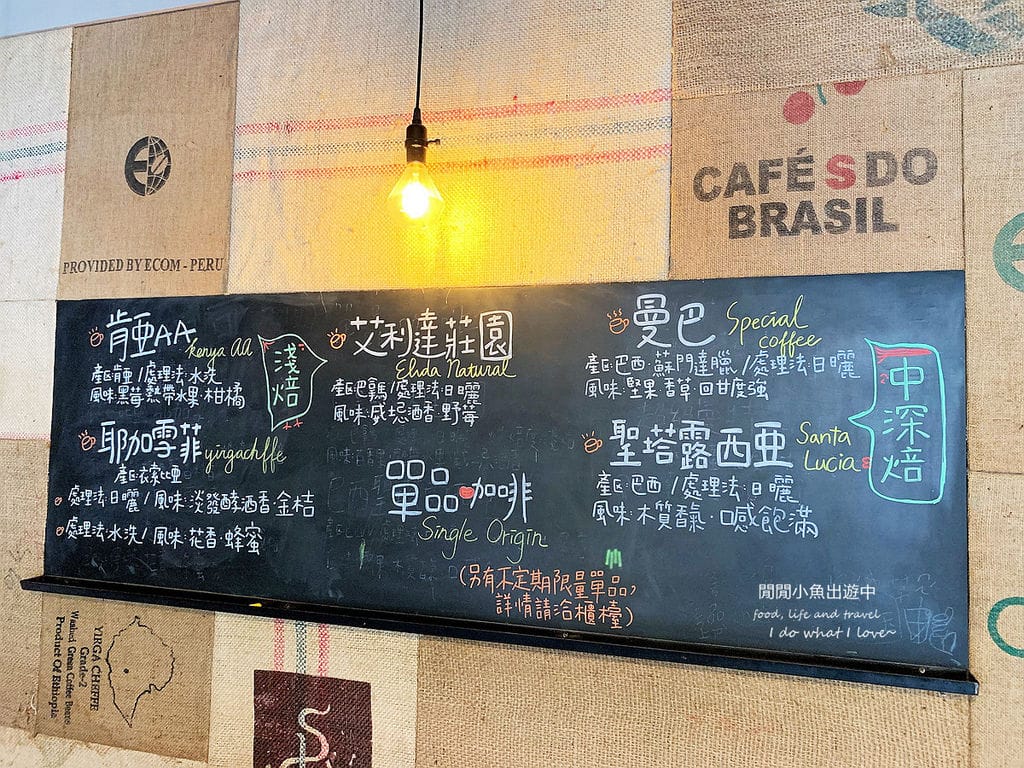 CAFÉS DO
BRASIL
PROVIDED BY ECOM - PERU
肯亞AA
kenya AA
產區:肯亞/處理法:水洗
風味:黑莓.熱帶水果.柑橘
淺焙
耶加雪菲
yirgacheffe
產區:衣索比亞
處理法:日曬/風味:淡發酵酒香.金桔
處理法:水洗/風味:花香.蜂蜜
艾利達莊園
Elida Natural
產區:巴拿馬/處理法:日曬
風味:威士忌酒香.野莓
單品咖啡
Single Origin
(另有不定期限量單品,
詳情請洽櫃檯)
曼巴
Special
coffee
產區:巴西.蘇門達臘/處理法:日曬
風味:堅果.香草.回甘度強
聖塔露西亞
Santa
Lucia
產區:巴西/處理法:日曬
風味:木質香氣.口感飽滿
中深焙
閒閒小魚出遊中
food, life and travel
I do what I love~
YIRGA CHEFFE
Grade-2
Washed Green Coffee Beans
Product Of Ethiopia